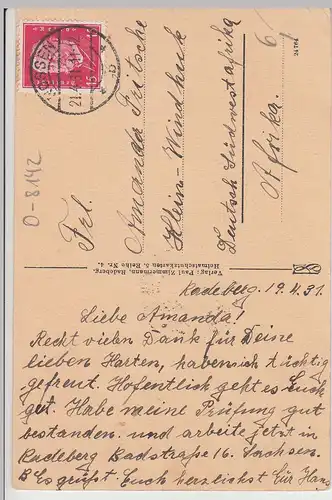 Frl.
Amanda Fritsche
Klein-Windhuk
Deutsch Südwestafrika
Afrika.
6/
24764
15 15
21.4.31
0-8142
Verlag: Paul Zimmermann, Radeberg.
Heimatschutzkarten 5. Reihe Nr. 4.
Radeberg. 19.4.31.
Liebe Amanda!
Recht vielen Dank für Deine
lieben Karten, haben mich tüchtig
gefreut. Hoffentlich geht es Euch
gut. Habe meine Prüfung gut
bestanden. und arbeite jetzt in
Radeberg Badstraße 16. Sachsen.
Es grüßt Euch herzlichst Eür Hans